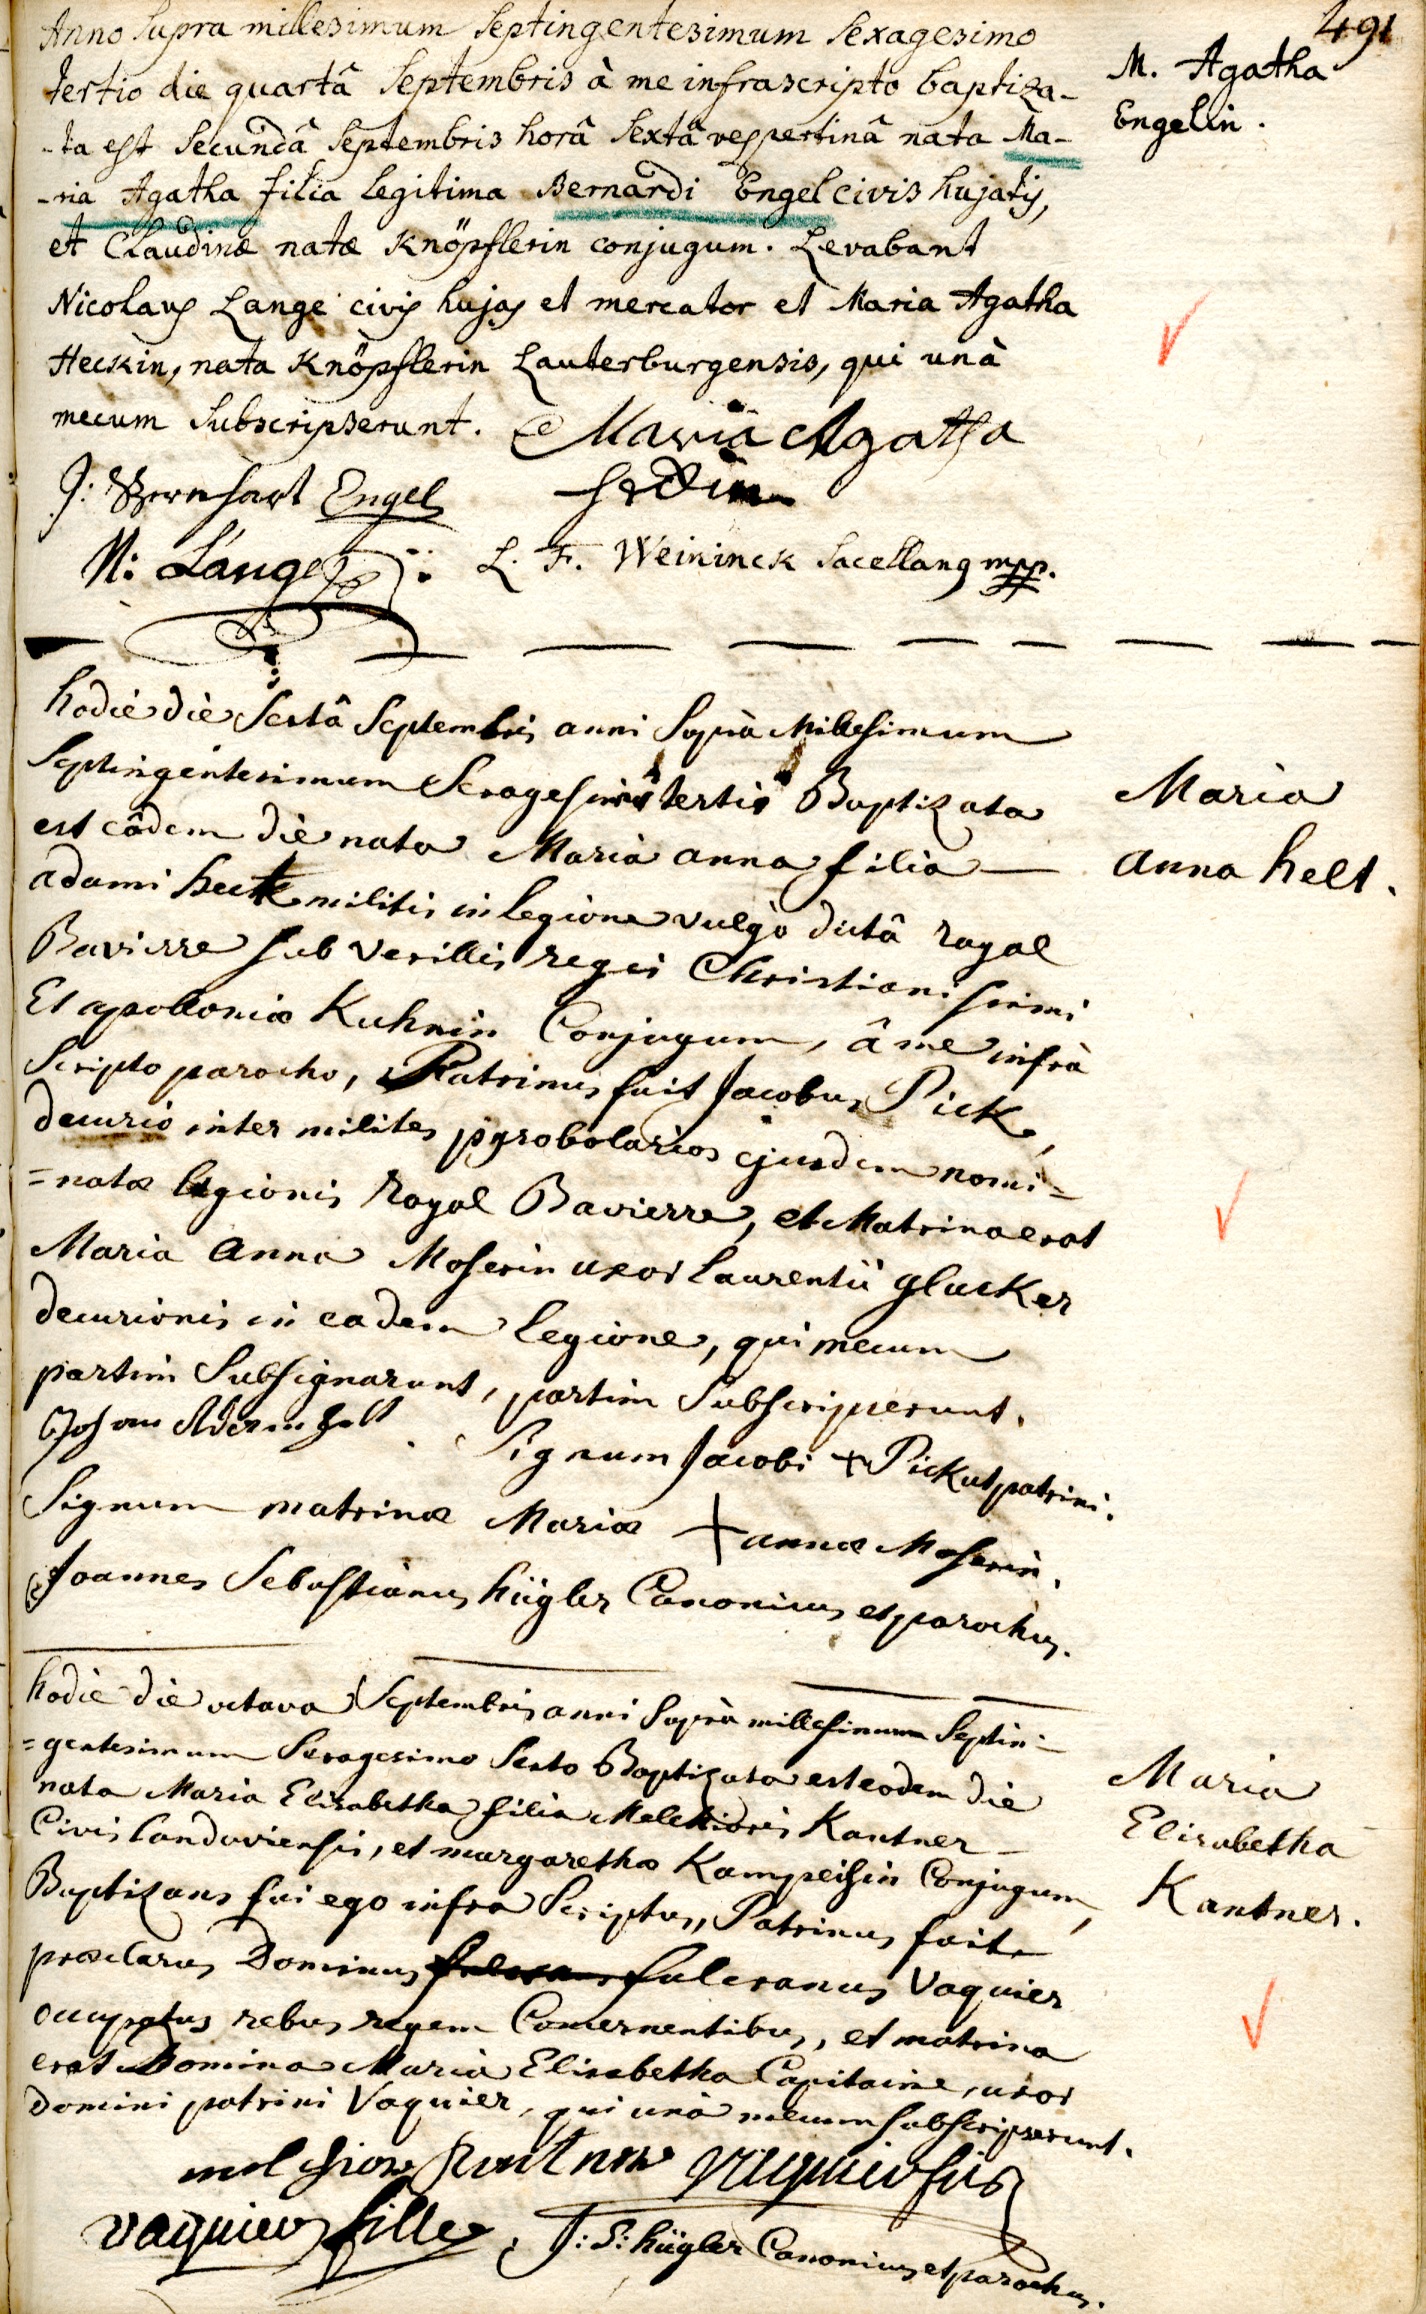 491
Anno supra millesimum Septingentesimum Sexagesimo
tertio die quartâ Septembris à me infrascripto baptiza-
-ta est Secundâ Septembris horâ Sextâ vespertinâ nata Ma-
-ria Agatha filia legitima Bernardi Engel civis hujatis,
et Claudinæ natæ Knöpflerin conjugum. Levabant
Nicolaus Lange civis hujas et mercator et Maria Agatha
Heckin, nata Knöpflerin Lauterburgensis, qui unà
mecum Subscripserunt. Maria Agatha
J: Bernhart Engel Heckin
N: Lange L. F. Weininck Sacellanus mpp.
M. Agatha
Engelin.
hodie die Sextâ Septembris anni Suprà Millesimum
Septingentesimum Sexagesimô tertiô Baptizata
est eâdem die nata Maria anna filia —
adami helt militis in legione vulgo dictâ royal
Bavierre sub Vexillis regis Christianissimi
Et apolloniæ Kuhnin Conjugum, â me infrà
Scripto parocho, Patrinus fuit Jacobus Pick,
decurio inter milites pyrobolarios ejusdem nomi=
=natæ legionis Royal Bavierre, et Matrina erat
Maria Anna Moserin uxor laurentii glucker
decurionis in eadem legione, qui mecum
partim Subsignarunt, partim Subscripserunt.
Johan Adam helt Signum Jacobi + Pick ut patrini.
Signum matrinæ Mariæ + annæ Moserin.
Joannes Sebastianus hügler Canonicus et parochus.
Maria
anna helt.
hodie die octava Septembris anni Suprà millesimum Septin=
=gentesimum Sexagesimo Sexto Baptizata est eodem die
nata Maria Elisabetha filia Melchioris Kantner
Civis landaviensis, et margarethæ Kampeisin Conjugum,
Baptizans fui ego infra Scriptus, Patrinus fuit
præclarus Dominus fulcranus Vaquier
occupatus rebus regem Concernentibus, et matrina
erat Domina Maria Elisabetha Capitaine, uxor
Domini patrini Vaquier, qui unà mecum subscripserunt.
melchior Kantner vaquier fils
vaquier fille J: S: hügler Canonicus et parochus.
Maria
Elisabetha
Kantner.